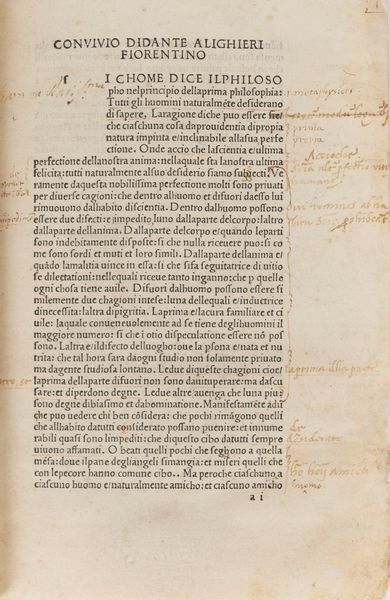 CONVIVIO DIDANTE ALIGHIERI
FIORENTINO
I CHOME DICE ILPHILOSO
pho nelprincipio dellaprima philosophia:
Tutti gli huomini naturalméte desiderano
di sapere. Laragione di che puo essere sie
che ciaschuna cosa daprouidentia dipropia
natura impinta e/inclinabile allasua perfe
ctione. Onde accio che lascientia e/ultima
perfectione dellanostra anima: nellaquale sta lanostra ultima
felicita: tutti naturalmente alsuo desiderio siamo subiecti. Ve
ramente daquesta nobilissima perfectione molti sono priuati
per diuerse cagioni: che dentro alhuomo et difuori daesso lui
rimuouono dallhabito discientia. Dentro dalhuomo possono
essere due difecti: e impedito luno dallaparte delcorpo: laltro
dallaparte dellanima. Dallaparte delcorpo e/quando leparti
sono indebitamente disposte: si che nulla riceuere puo: si co
me sono sordi et muti et loro simili. Dallaparte dellanima e/
quãdo lamalitia uince in essa: si che sifa seguitatrice di uitio
se dilectationi: nellequali riceue tanto inganno: che p quelle
ogni chosa tiene auile. Difuori dalhuomo possono essere si
milemente due chagioni intese: luna dellequali e/inductrice
dinecessita: laltra dipigritia. Laprima e/lacura familiare et ci
uile: laquale conueneuolemente ad se tiene deglihuomini il
maggiore numero: si che í otio dispeculatione essere nõ pos
sono. Laltra e/ildifecto delluogho: oue la psona e/nata et nu
trita: che tal hora sara daogni studio non solamente priuato
ma dagente studiosa lontano. Ledue diqueste chagioni cioe/
laprima dellaparte difuori non sono dauituperare: ma dascu
sare: et diperdono degne. Ledue altre auenga che luna piu
sono degne dibiasimo et dabominatione. Manifestamẽte adũ
che puo uedere chi ben cõsidera: che pochi rimãgono quelli
che allhabito datutti considerato possano puenire: et innume
rabili quasi sono limpediti: che diquesto cibo datutti sempre
uiuono affamati. O beati quelli pochi che seghono a quella
mẽsa: doue ilpane degliangeli simangia: et miseri quelli che
con lepecore hanno comune cibo.. Ma peroche ciaschuno a
ciascuno huomo e/naturalmente amicho: et ciascuno amicho
a i
propria
laprima della parte